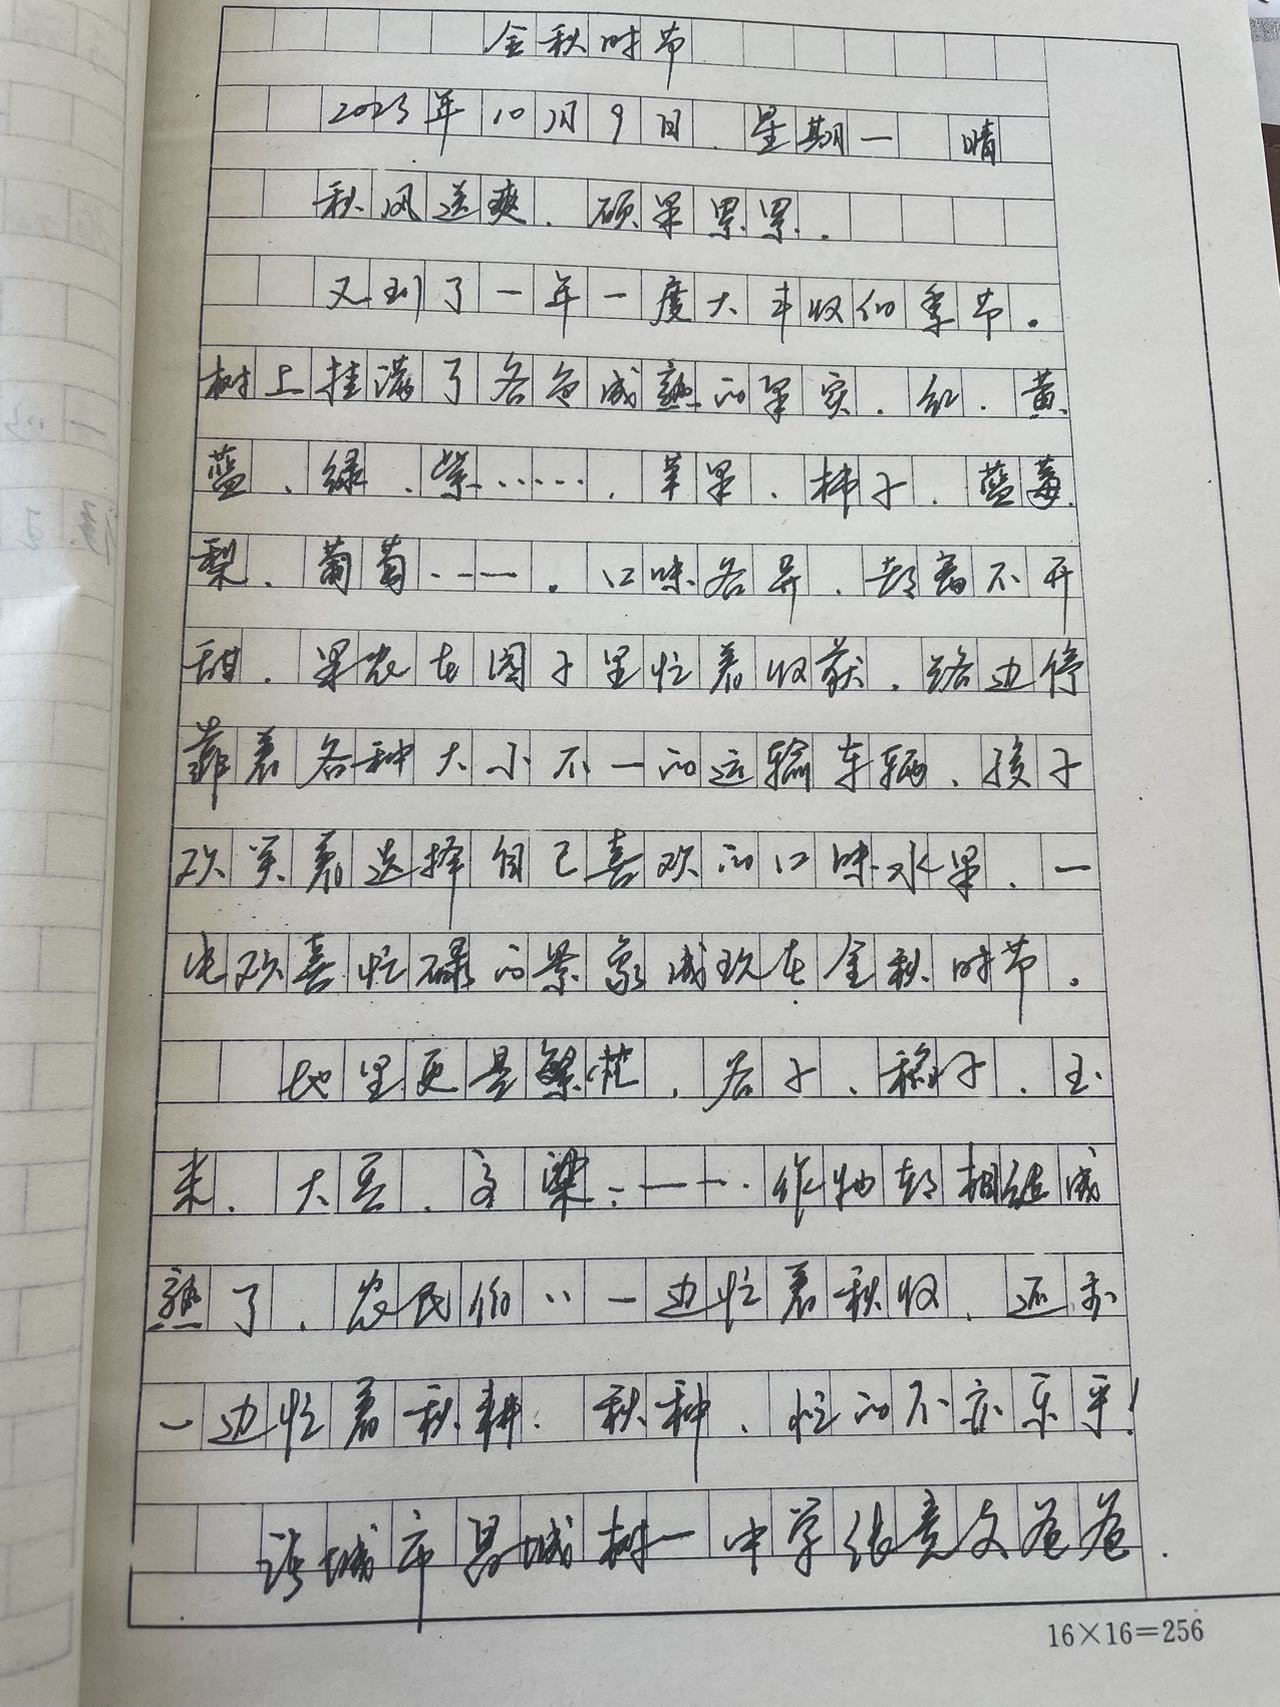 金秋时节
2023年10月9日、星期一 晴
秋风送爽、硕果累累.
又到了一年一度大丰收的季节。
树上挂满了各色成熟的果实、红、黄、
蓝、绿、紫……、苹果、柿子、蓝莓、
梨、葡萄……。口味各异、都离不开
甜、果农在园子里忙着收获、路边停
靠着各种大小不一的运输车辆、孩子
欢笑着选择自己喜欢的口味水果、一
欢喜忙碌的景象成现在金秋时节。
地里更是繁忙、谷子、稻子、玉
米、大豆、高粱……作物都相继成
熟了、农民伯〃一边忙着秋收、还要
一边忙着秋耕、秋种、忙的不亦乐乎!
诸城市昌城树一中学张竞文爸爸.
16×16=256